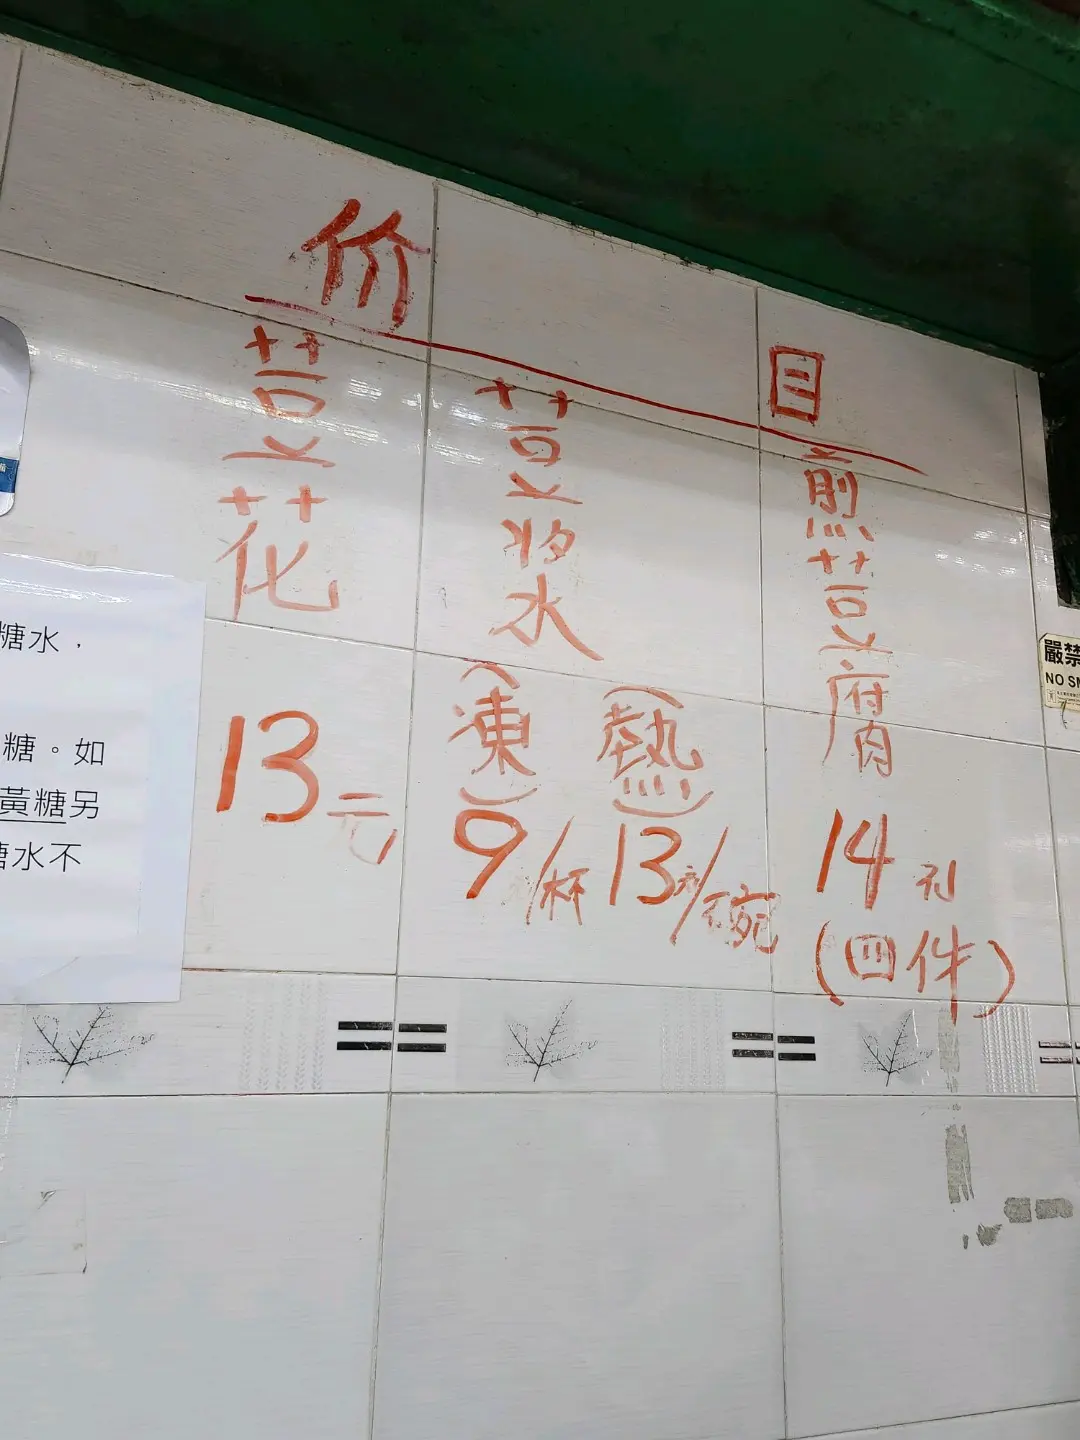 价目
荳花
13元
荳浆
(凍)
9/杯
(熱)
13元/碗
煎荳腐
14元
(四件)
糖水，
糖。如
黃糖另
糖水不
嚴禁
NO SM